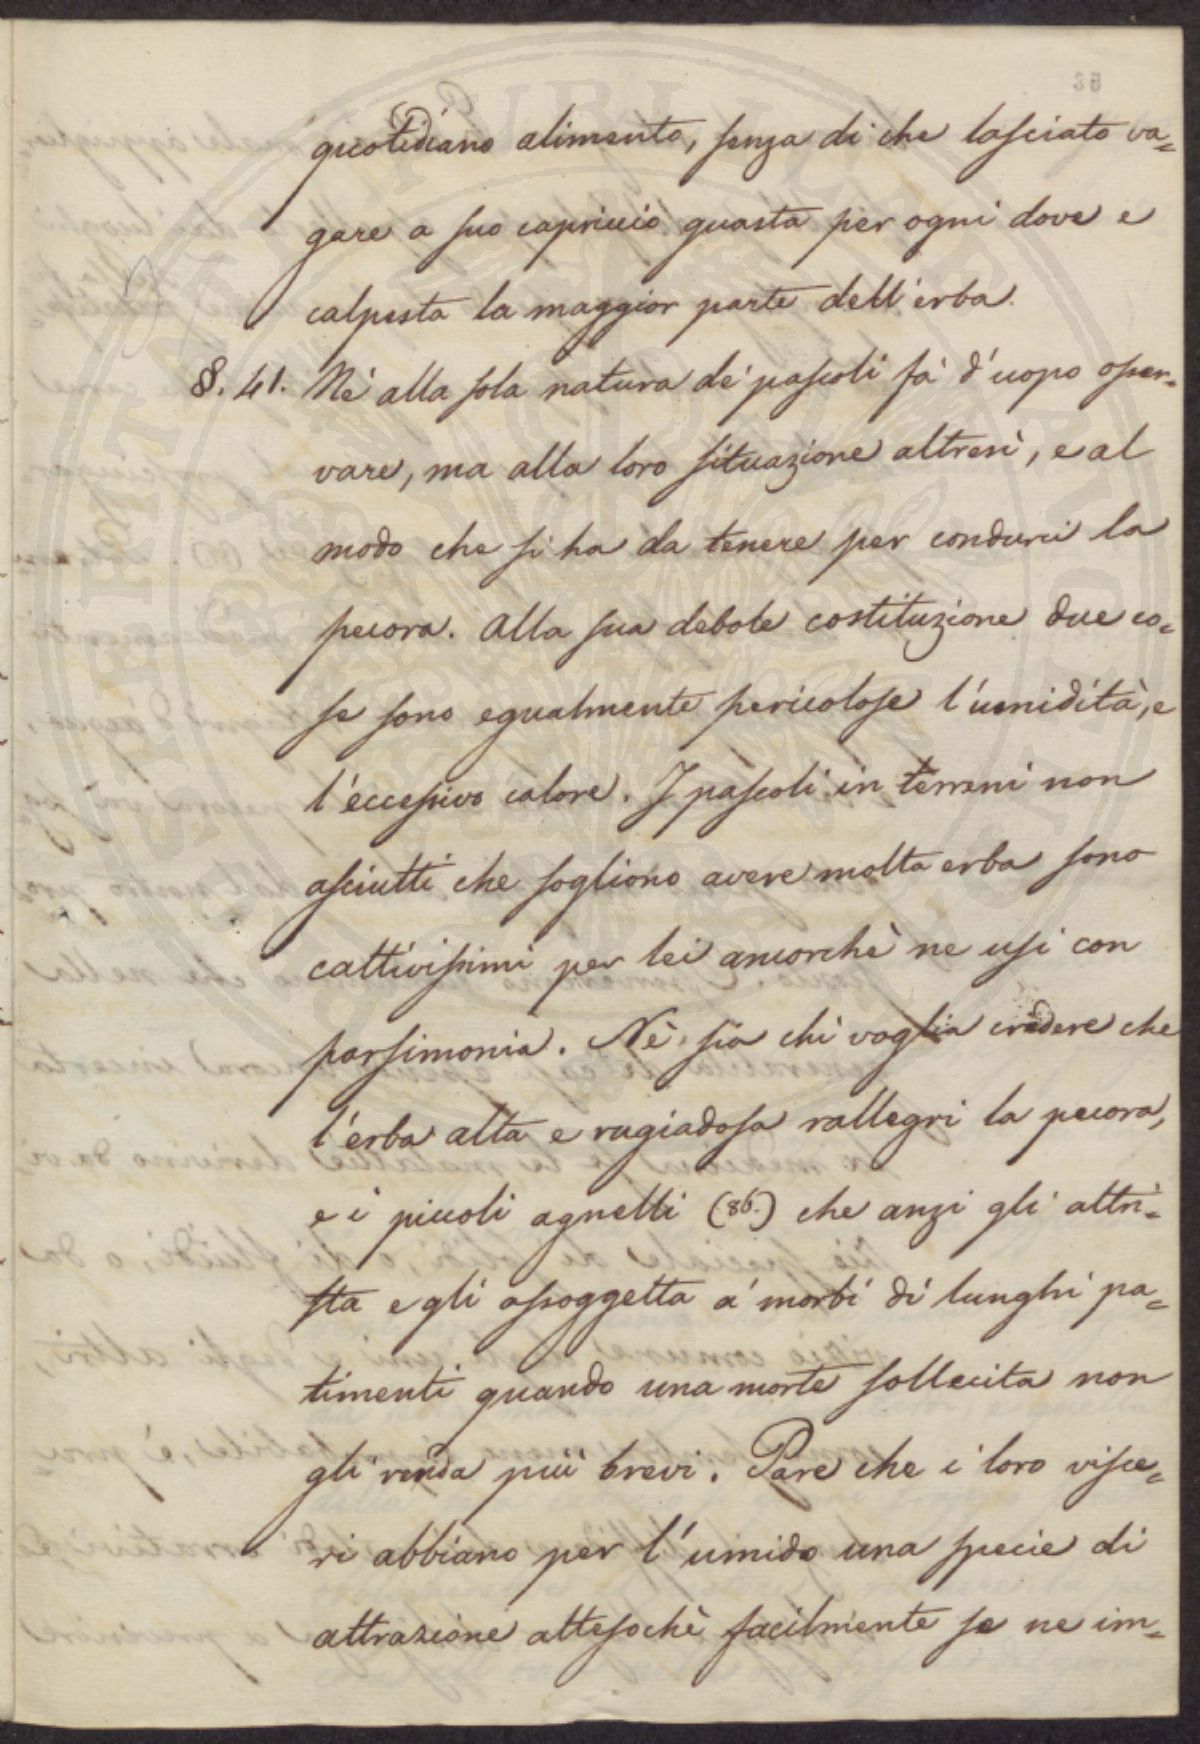 38
quotidiano alimento, senza di che lasciato va=
gare a suo capriccio guasta per ogni dove e
calpesta la maggior parte dell'erba.
§. 41. Nè alla sola natura de' pascoli fà d'uopo osser=
vare, ma alla loro situazione altresì, e al
modo che si ha da tenere per condurci la
pecora. Alla sua debole costituzione due co=
se sono egualmente pericolose l'umidità, e
l'eccessivo calore. I pascoli in terreni non
asciutti che sogliono avere molta erba sono
cattivissimi per lei ancorchè ne usi con
parsimonia. Nè sia chi voglia credere che
l'erba alta e rugiadosa rallegri la pecora,
e i piccoli agnelli (86.) che anzi gli attri=
sta e gli assoggetta a' morbi di lunghi pa=
timenti quando una morte sollecita non
gli renda più brevi. Pare che i loro visce=
ri abbiano per l'umido una specie di
attrazione attesochè facilmente se ne im=